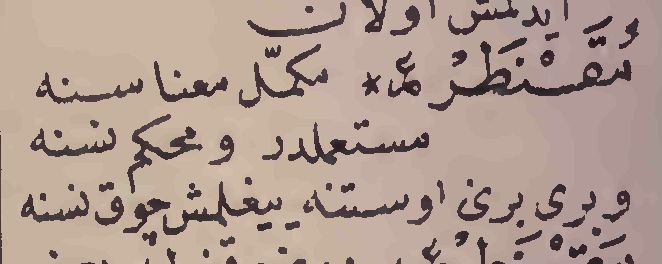 ايدلمش اولان
مُقَنْطَرْ عـ * مكمّل معناسنه
مستعملدر و محكم نسنه
و برى برى اوستنه ييغلمش چوق نسنه